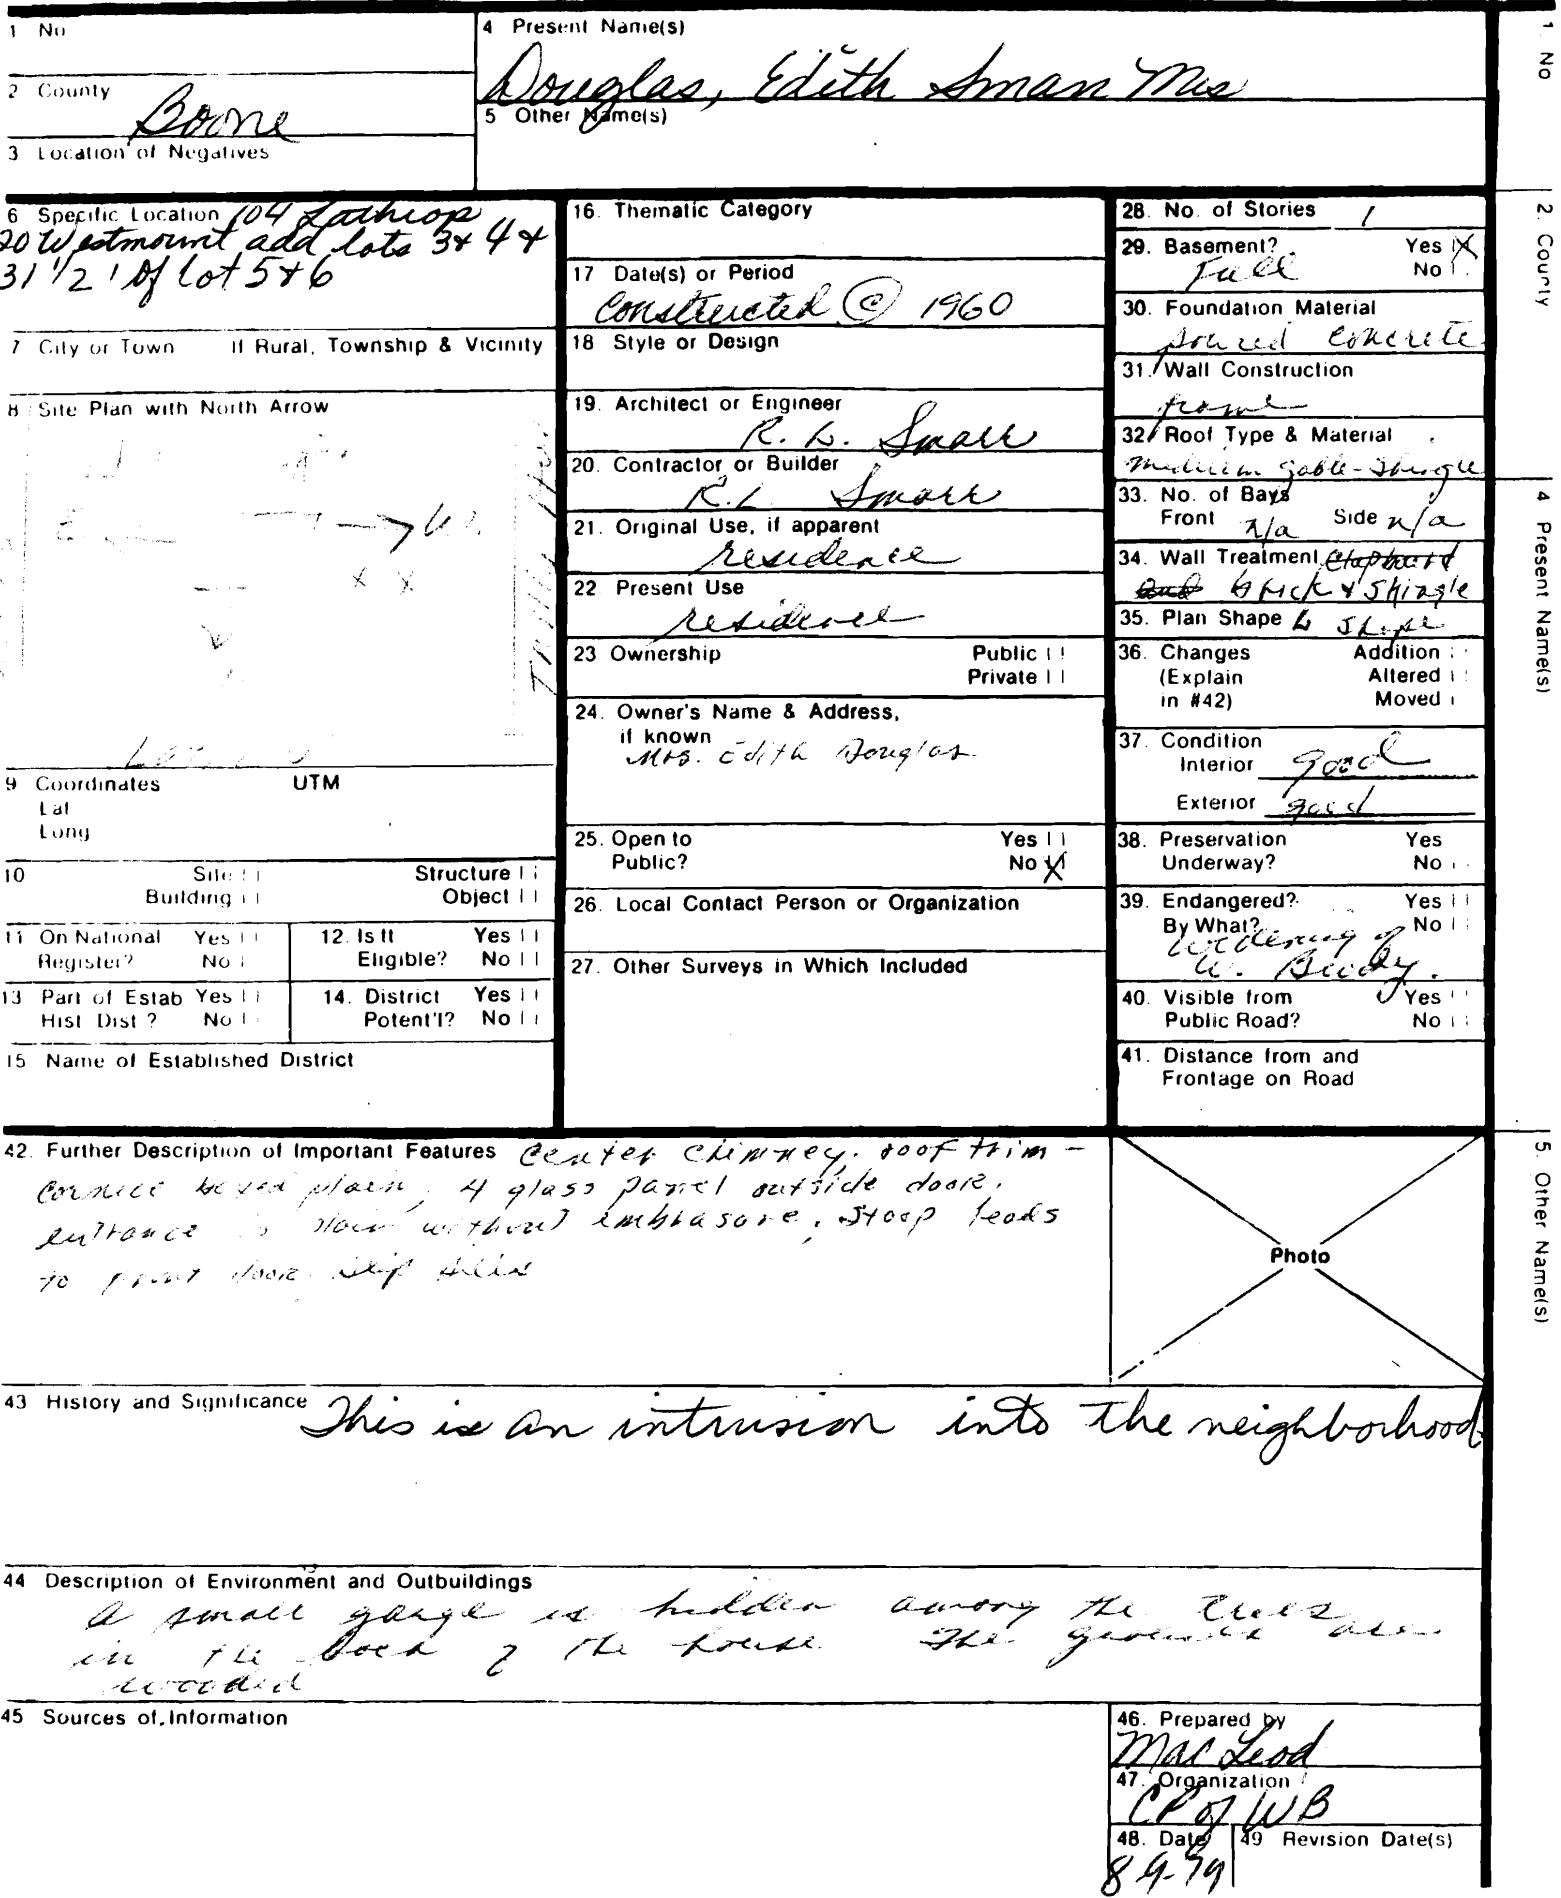 1 No
4 Present Name(s)
Douglas, Edith Mrs
2 County
Boone
5 Other Name(s)
3 Location of Negatives
6 Specific Location 104 Lathrop
20 Westmount add lots 3 & 4 &
31 1/2 ' of lot 5 & 6
7 City or Town If Rural, Township & Vicinity
8 Site Plan with North Arrow
9 Coordinates UTM
Lat
Long
10 Site Structure
Building Object
11 On National Register? Yes No
12. Is It Eligible? Yes No
13 Part of Estab Hist Dist ? Yes No
14. District Potent'l? Yes No
15 Name of Established District
16. Thematic Category
17 Date(s) or Period
Constructed © 1960
18 Style or Design
19. Architect or Engineer
R. L. Smarr
20. Contractor or Builder
R.L Smarr
21. Original Use, if apparent
residence
22 Present Use
residence
23 Ownership Public
Private
24. Owner's Name & Address,
if known
Mrs. Edith Douglas
25. Open to Yes
Public? No X
26. Local Contact Person or Organization
27. Other Surveys in Which Included
28. No. of Stories 1
29. Basement? Yes X
Full No
30. Foundation Material
poured concrete
31. Wall Construction
frame
32. Roof Type & Material
medium gable-shingle
33. No. of Bays
Front n/a Side n/a
34. Wall Treatment Clapboard
and brick & shingle
35. Plan Shape L shape
36. Changes Addition
(Explain Altered
in #42) Moved
37. Condition
Interior good
Exterior good
38. Preservation Yes
Underway? No
39. Endangered? Yes
By What? No
widening of
W. Brody.
40. Visible from Yes
Public Road? No
41. Distance from and
Frontage on Road
42. Further Description of Important Features Center chimney, roof trim -
cornice boxed plain, 4 glass panel outside door,
entrance is plain without embrasure, stoop leads
to front door, slip sills
Photo
43 History and Significance This is an intrusion into the neighborhood.
44 Description of Environment and Outbuildings
a small garage is hidden among the trees
in the back of the house The grounds are
wooded
45 Sources of Information
46. Prepared by
MacLeod
47. Organization
CP of WB
48. Date 49 Revision Date(s)
8-9-79
1 No
2. County
4 Present Name(s)
5 Other Name(s)